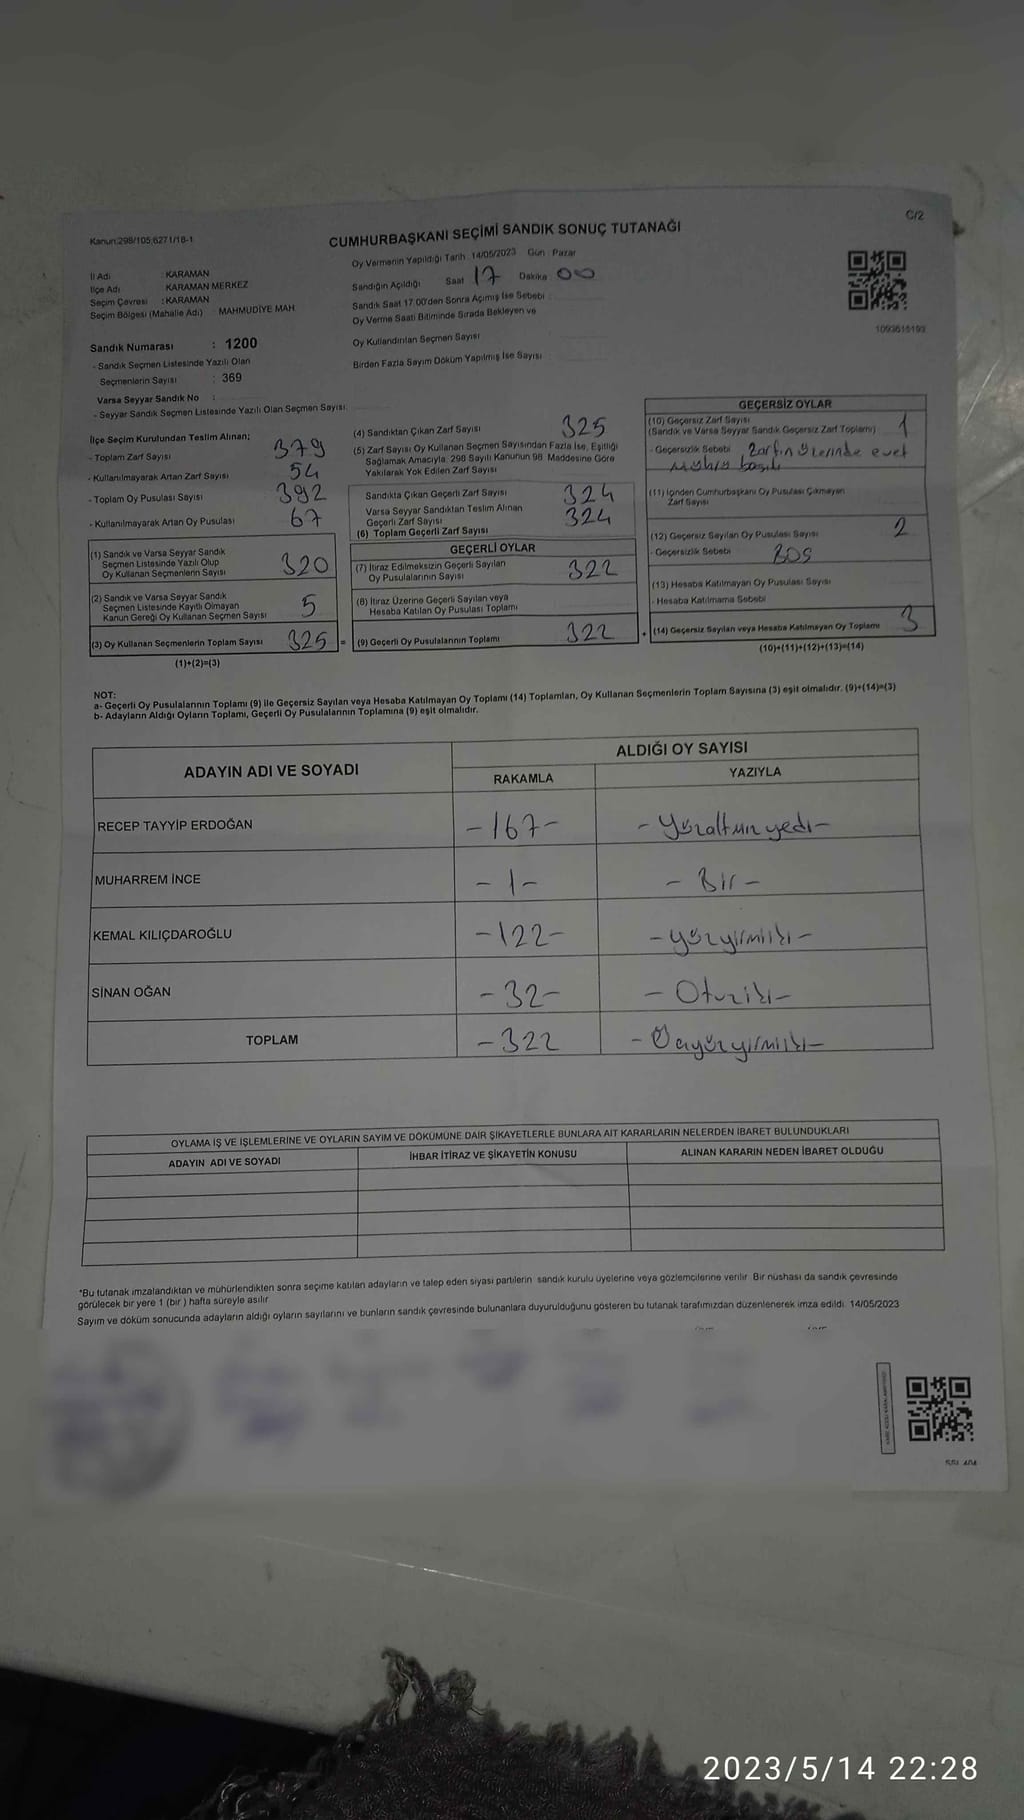 C/2
Kanun:298/105,6271/18-1
CUMHURBAŞKANI SEÇİMİ SANDIK SONUÇ TUTANAĞI
İl Adı : KARAMAN
İlçe Adı : KARAMAN MERKEZ
Seçim Çevresi : KARAMAN
Seçim Bölgesi (Mahalle Adı) : MAHMUDİYE MAH
Sandık Numarası : 1200
- Sandık Seçmen Listesinde Yazılı Olan
Seçmenlerin Sayısı : 369
Varsa Seyyar Sandık No :
- Seyyar Sandık Seçmen Listesinde Yazılı Olan Seçmen Sayısı:
Oy Vermenin Yapıldığı Tarih 14/05/2023 Gün Pazar
Sandığın Açıldığı Saat 17 Dakika 00
Sandık Saat 17:00'den Sonra Açılmış İse Sebebi
Oy Verme Saati Bitiminde Sırada Bekleyen ve
Oy Kullandırılan Seçmen Sayısı
Birden Fazla Sayım Döküm Yapılmış İse Sayısı
1093616193
İlçe Seçim Kurulundan Teslim Alınan;
- Toplam Zarf Sayısı 379
- Kullanılmayarak Artan Zarf Sayısı 54
- Toplam Oy Pusulası Sayısı 392
- Kullanılmayarak Artan Oy Pusulası 67
(1) Sandık ve Varsa Seyyar Sandık
Seçmen Listesinde Yazılı Olup
Oy Kullanan Seçmenlerin Sayısı 320
(2) Sandık ve Varsa Seyyar Sandık
Seçmen Listesinde Kayıtlı Olmayan
Kanun Gereği Oy Kullanan Seçmen Sayısı 5
(3) Oy Kullanan Seçmenlerin Toplam Sayısı 325 =
(1)+(2)=(3)
(4) Sandıktan Çıkan Zarf Sayısı 325
(5) Zarf Sayısı Oy Kullanan Seçmen Sayısından Fazla İse, Eşitliği
Sağlamak Amacıyla 298 Sayılı Kanunun 98 Maddesine Göre
Yakılarak Yok Edilen Zarf Sayısı
Sandıkta Çıkan Geçerli Zarf Sayısı 324
Varsa Seyyar Sandıktan Teslim Alınan
Geçerli Zarf Sayısı 324
(6) Toplam Geçerli Zarf Sayısı
GEÇERLİ OYLAR
(7) İtiraz Edilmeksizin Geçerli Sayılan
Oy Pusulalarının Sayısı 322
(8) İtiraz Üzerine Geçerli Sayılan veya
Hesaba Katılan Oy Pusulası Toplamı
(9) Geçerli Oy Pusulalarının Toplamı 322 +
GEÇERSİZ OYLAR
(10) Geçersiz Zarf Sayısı
(Sandık ve Varsa Seyyar Sandık Geçersiz Zarf Toplamı) 1
- Geçersizlik Sebebi Zarfın üzerinde evet
mührü basılı
(11) İçinden Cumhurbaşkanı Oy Pusulası Çıkmayan
Zarf Sayısı
(12) Geçersiz Sayılan Oy Pusulası Sayısı 2
- Geçersizlik Sebebi BOŞ
(13) Hesaba Katılmayan Oy Pusulası Sayısı
- Hesaba Katılmama Sebebi
(14) Geçersiz Sayılan veya Hesaba Katılmayan Oy Toplamı 3
(10)+(11)+(12)+(13)=(14)
NOT:
a- Geçerli Oy Pusulalarının Toplamı (9) ile Geçersiz Sayılan veya Hesaba Katılmayan Oy Toplamı (14) Toplamları, Oy Kullanan Seçmenlerin Toplam Sayısına (3) eşit olmalıdır. (9)+(14)=(3)
b- Adayların Aldığı Oyların Toplamı, Geçerli Oy Pusulalarının Toplamına (9) eşit olmalıdır.
ADAYIN ADI VE SOYADI
ALDIĞI OY SAYISI
RAKAMLA YAZIYLA
RECEP TAYYİP ERDOĞAN -167- -Yüzaltmışyedi-
MUHARREM İNCE -1- -Bir-
KEMAL KILIÇDAROĞLU -122- -yüzyirmiiki-
SİNAN OĞAN -32- -Otuziki-
TOPLAM -322 -Üçyüzyirmiiki-
OYLAMA İŞ VE İŞLEMLERİNE VE OYLARIN SAYIM VE DÖKÜMÜNE DAİR ŞİKAYETLERLE BUNLARA AİT KARARLARIN NELERDEN İBARET BULUNDUKLARI
ADAYIN ADI VE SOYADI İHBAR İTİRAZ VE ŞİKAYETİN KONUSU ALINAN KARARIN NEDEN İBARET OLDUĞU
*Bu tutanak imzalandıktan ve mühürlendikten sonra seçime katılan adayların ve talep eden siyasi partilerin sandık kurulu üyelerine veya gözlemcilerine verilir. Bir nüshası da sandık çevresinde
görülecek bir yere 1 (bir) hafta süreyle asılır
Sayım ve döküm sonucunda adayların aldığı oyların sayılarını ve bunların sandık çevresinde bulunanlara duyurulduğunu gösteren bu tutanak tarafımızdan düzenlenerek imza edildi. 14/05/2023
2023/5/14 22:28